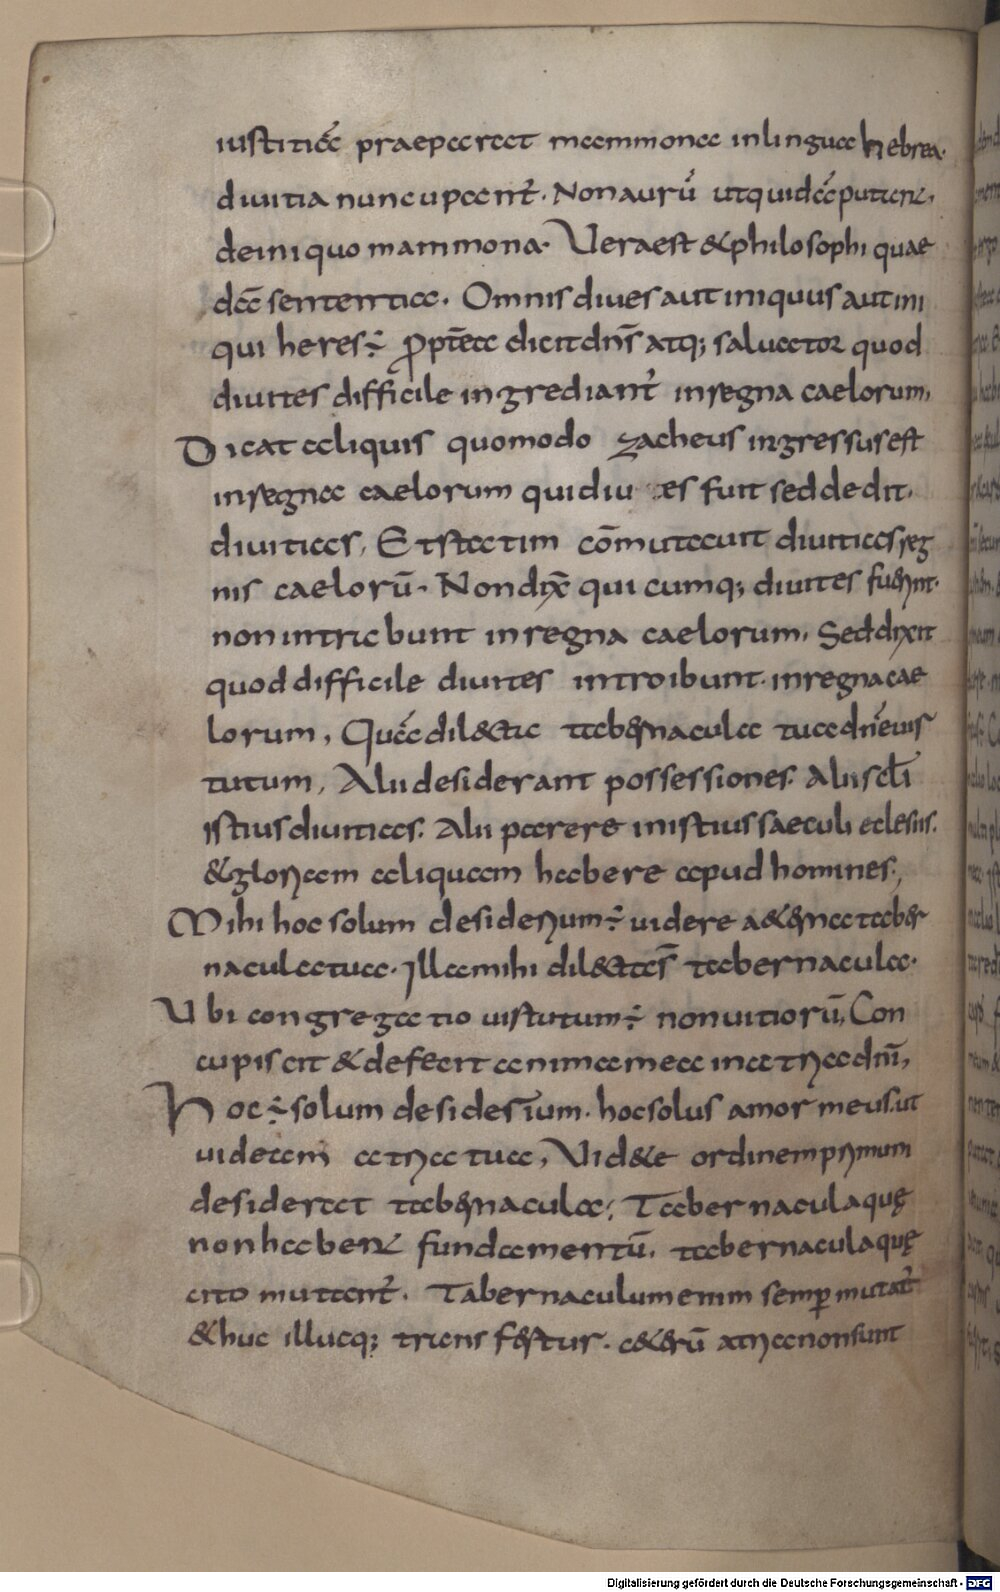 iustitiae praeparat mammona in lingua hebrea.
diuitia nuncupant̄. Non aurū ut quidā putant,
de iniquo mammona. Uera est & philosophi quae
dā sententia. Omnis diues aut iniquus aut ini
qui heres ÷ Propt̄ea dicit dn̄s atq; saluator quod
diuites difficile ingrediant̄ in regna caelorum,
Dicat aliquis quomodo zacheus ingressus est
in regna caelorum qui diu es fuit sed dedit.
diuitias, Et statim cōmutauit diuitias reg
nis caelorū. Non dix̄ qui cumq; diuites fuerint.
non intrabunt in regna caelorum, Sed dixit
quod difficile diuites introibunt in regna cae
lorum, Quā dil&ta tabernacula tua dn̄e uir
tutum, Alii desiderant possessiones. Alii sc̄li
istius diuitias. Alii parere in istius saeculi eclesiis.
& gloriam aliquam habere apud homines,
Mihi hoc solum desiderium ÷ uidere a&erna taber
nacula tua. Illa mihi dil&tas̄ tabernacula.
Ubi congregatio uirtutum ÷ non uitiorū, Con
cupiscit & defecit anima mea in atria dn̄i,
Hoc ÷ solum desiderium. hoc solus amor meus. ut
uideam atria tua, Uid&e ordinem primum
desiderat tabernacula; Tabernacula quę
non habent fundamentū. tabernacula quę
cito mutant̄. Tabernaculum enim semp mutat̄
& huc illucq; triens fertur. c&erū atria non sunt
Digitalisierung gefördert durch die Deutsche Forschungsgemeinschaft - DFG